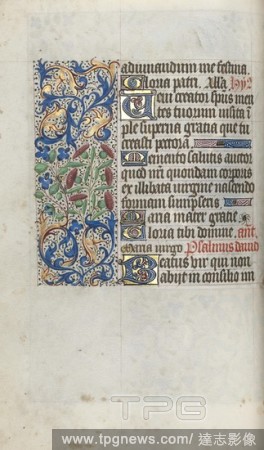 adiuuandum me festina.
Gloria patri. Alla ymp̄
Veni creator spūs men
tes tuorum visita i
ple superna gratia que tu
creasti pectora
Memento salutis auctor
quod nr̄i quondam corporis
ex illibata virgine nascendo
formam sumpseris
Maria mater gratie
Gloria tibi domine. ant̄.
Maria virgo Psalmus dauid
Beatus vir qui non
abijt in consilio im
TPG
www.tpgnews.com / 達志影像